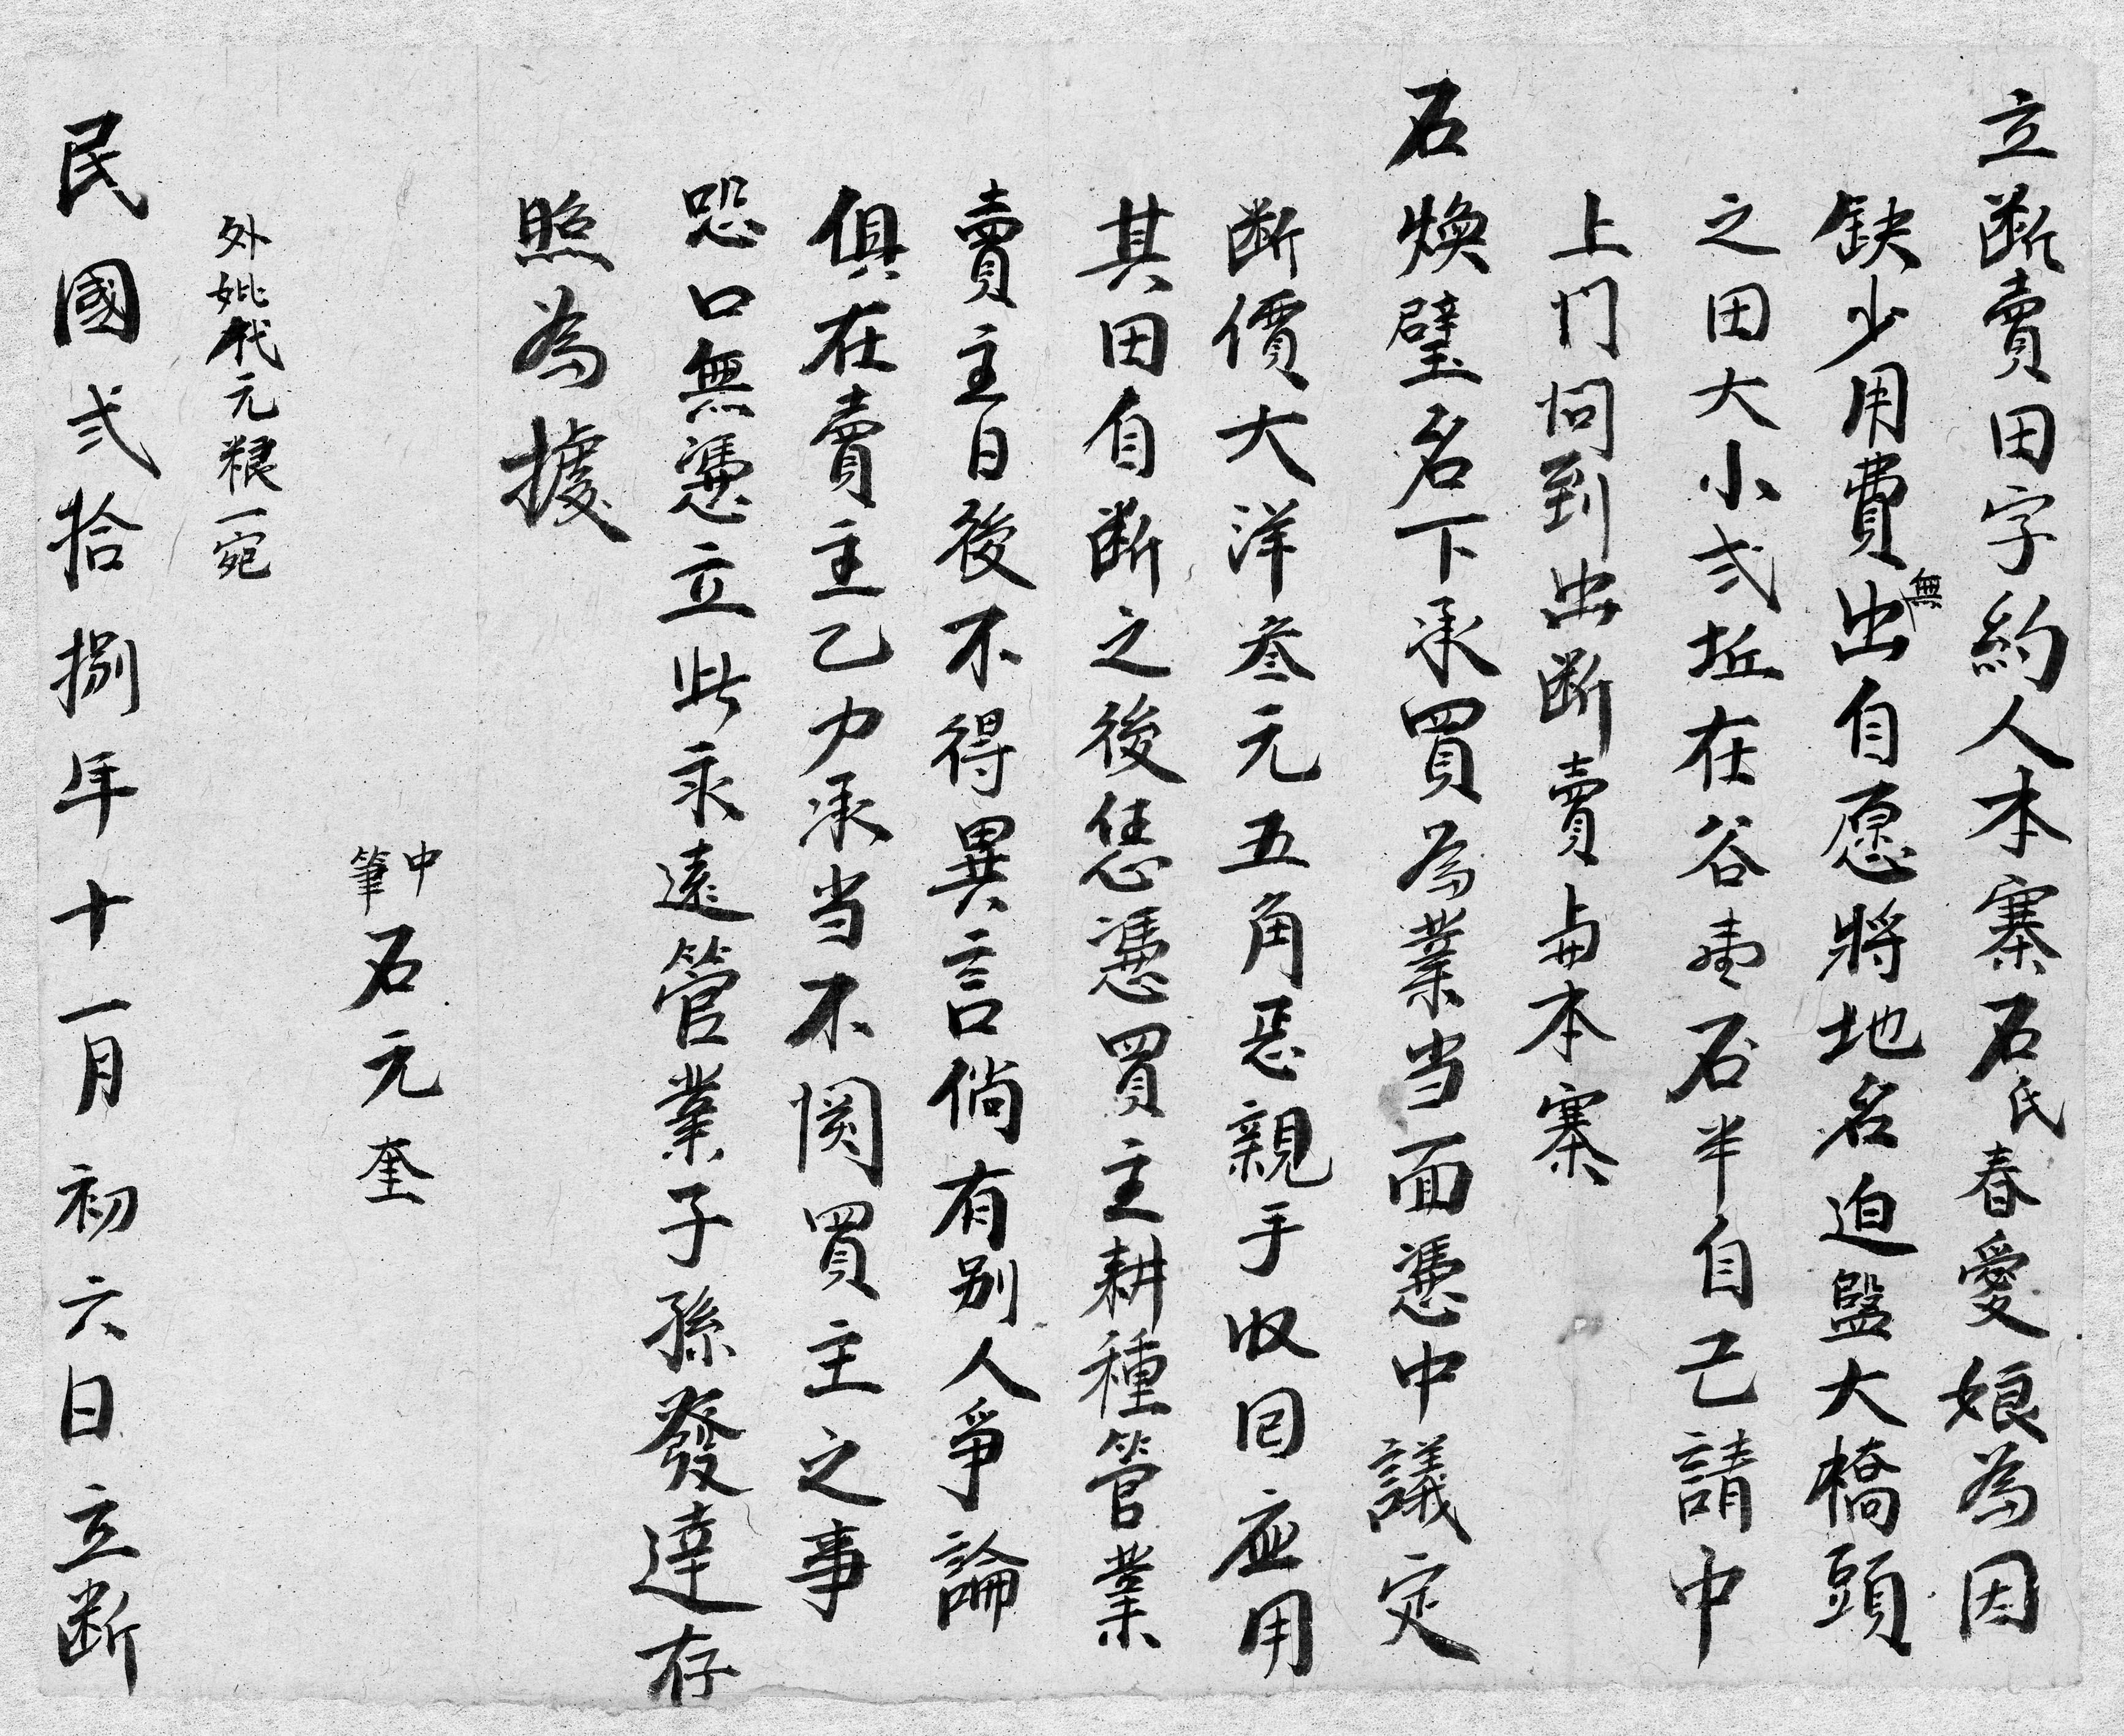 立断賣田字約人本寨石氏春愛娘為因
缺少用費無出自愿將地名迫盤大橋頭
之田大小弍坵在谷壱石半自己請中
上门问到出断賣与本寨
石煥璧名下承買為業当面憑中議定
断價大洋叁元五角㤙親手收回应用
其田自断之後恁憑買主耕種管業
賣主日後不得異言倘有别人爭論
俱在賣主乙力承当不関買主之事
恐口無憑立此永遠管業子孫發達存
照為據
中
筆
石元奎
外毗代元粮一宛
民國弍拾捌年十一月初六日立断